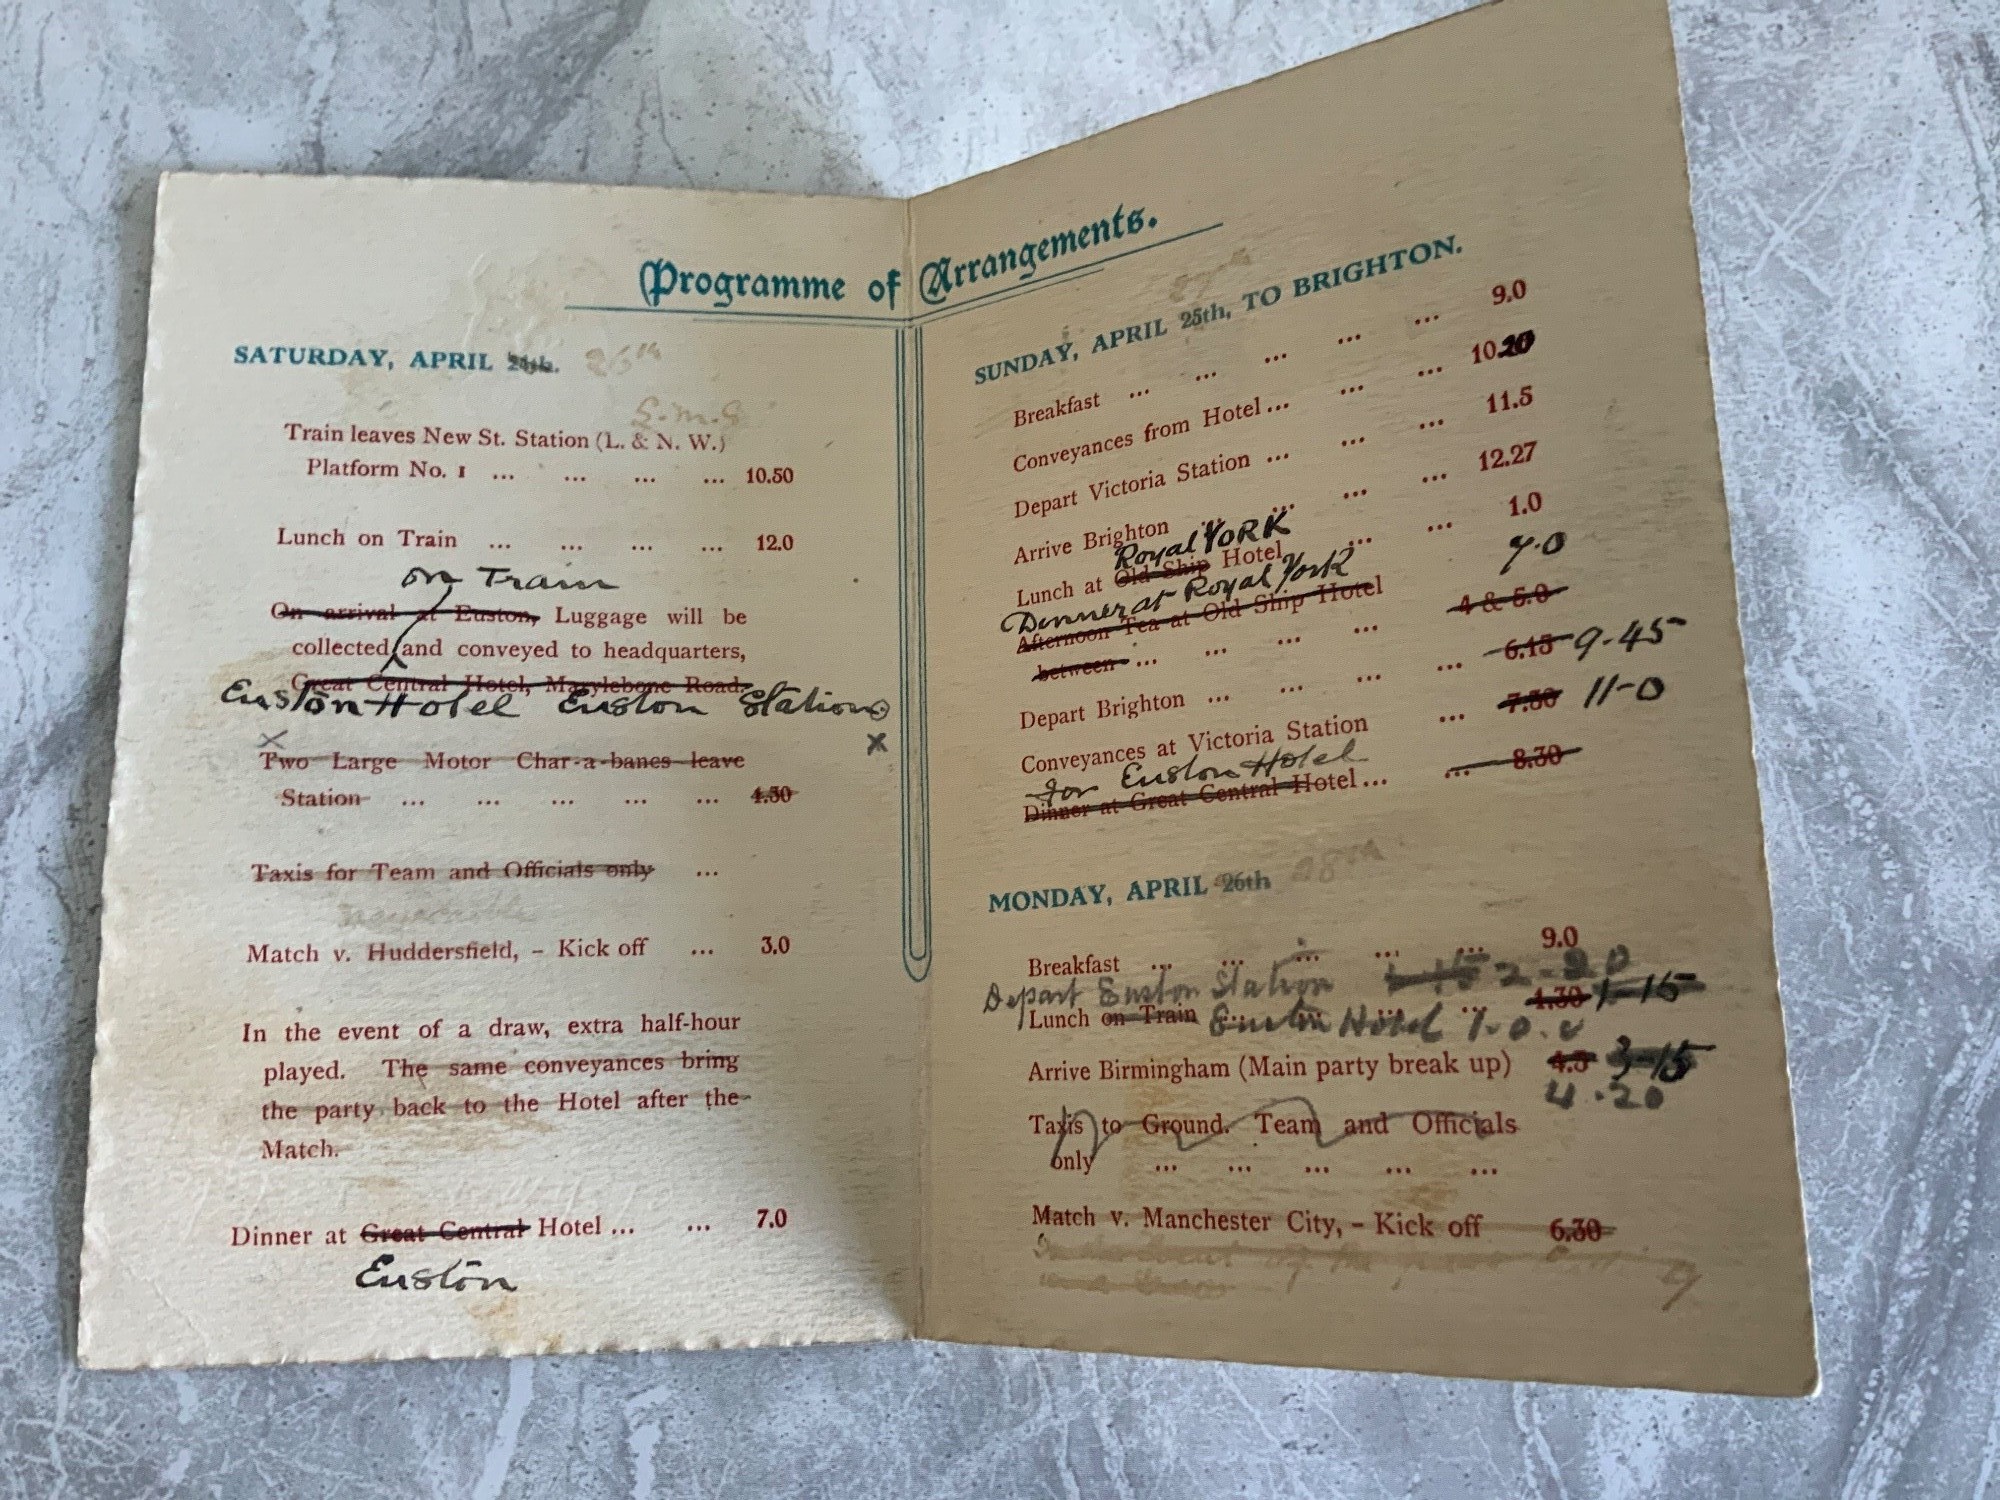 Programme of Arrangements.
SATURDAY, APRIL 24th. 26th
L.M.S
Train leaves New St. Station (L. & N. W.)
Platform No. 1 ... ... ... ... 10.50
Lunch on Train ... ... ... ... 12.0
on Train
On arrival at Euston, Luggage will be
collected and conveyed to headquarters,
Great Central Hotel, Marylebone Road.
Euston Hotel Euston Station
x x
Two Large Motor Char-a-bancs leave
Station ... ... ... ... ... 1.30
Taxis for Team and Officials only ...
Newcastle
Match v. Huddersfield, - Kick off ... 3.0
In the event of a draw, extra half-hour
played. The same conveyances bring
the party back to the Hotel after the
Match.
Dinner at Great Central Hotel ... ... 7.0
Euston
SUNDAY, APRIL 25th, TO BRIGHTON.
Breakfast ... ... ... ... ... 9.0
Conveyances from Hotel ... ... ... 10.20
Depart Victoria Station ... ... ... 11.5
Arrive Brighton ... ... ... ... 12.27
Royal YORK
Lunch at Old Ship Hotel ... ... 1.0
Dinner at Royal York 7.0
Afternoon Tea at Old Ship Hotel
between ... ... ... ... 4 & 5.0
Depart Brighton ... ... ... ... 6.15 9-45
Conveyances at Victoria Station ... 7.30 11-0
for Euston Hotel
Dinner at Great Central Hotel ... ... 8.30
MONDAY, APRIL 26th 28th
Breakfast ... ... ... ... ... 9.0
Depart Euston Station 2-20
Lunch on Train ... ... ... ... 1.30 1-15
Euston Hotel 1.0.
Arrive Birmingham (Main party break up) 4.5 3-15
4.20
Taxis to Ground. Team and Officials
only ... ... ... ... ...
Match v. Manchester City, - Kick off 6.30